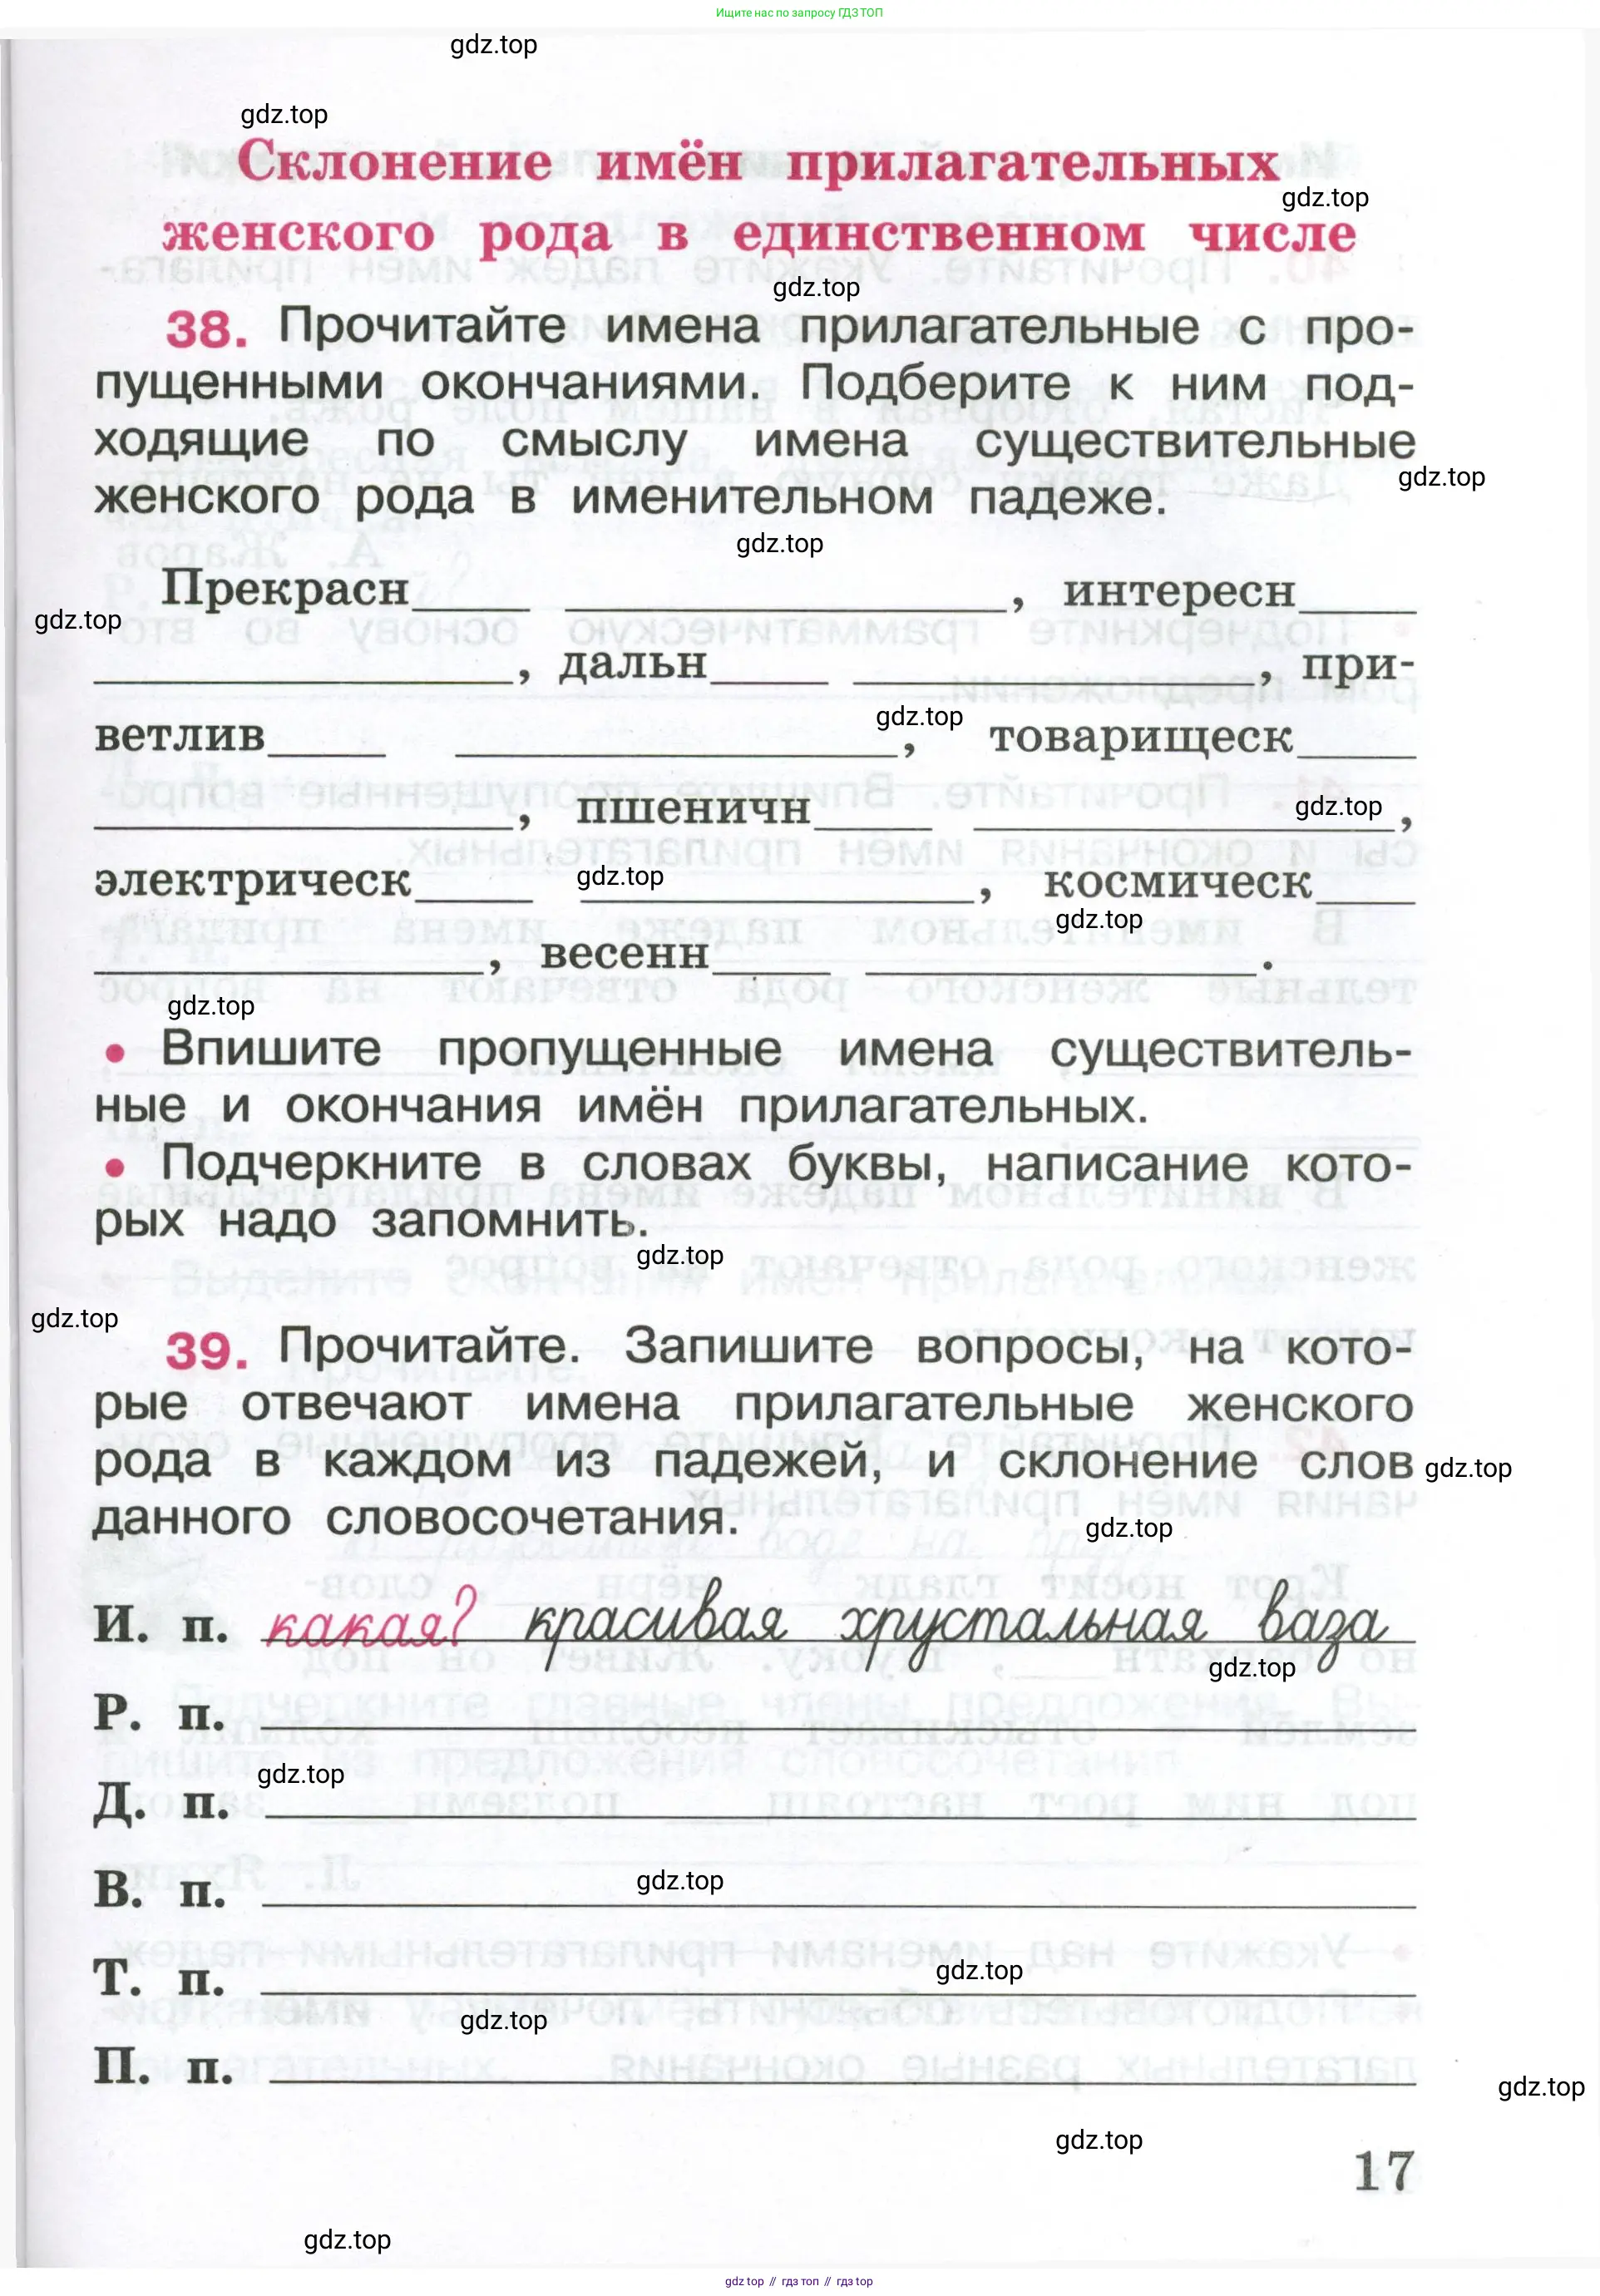 Ищите нас по запросу ГДЗ ТОП
gdz.top
gdz.top
Склонение имён прилагательных
gdz.top
женского рода в единственном числе
gdz.top
38. Прочитайте имена прилагательные с про-
пущенными окончаниями. Подберите к ним под-
ходящие по смыслу имена существительные
gdz.top
женского рода в именительном падеже.
gdz.top
Прекрасн____ ____, интересн____
gdz.top
____, дальн____ ____, при-
gdz.top
ветлив____ ____, товарищеск____
gdz.top
____, пшеничн____ ____,
электрическ____ ____, космическ____
gdz.top
gdz.top
____, весенн____ ____.
gdz.top
• Впишите пропущенные имена существитель-
ные и окончания имён прилагательных.
• Подчеркните в словах буквы, написание кото-
рых надо запомнить.
gdz.top
gdz.top
39. Прочитайте. Запишите вопросы, на кото-
рые отвечают имена прилагательные женского
рода в каждом из падежей, и склонение слов
gdz.top
данного словосочетания.
gdz.top
И. п. какая? красивая хрустальная ваза
gdz.top
Р. п.
gdz.top
Д. п.
gdz.top
В. п.
gdz.top
Т. п.
gdz.top
П. п.
gdz.top
gdz.top
17
gdz.top
gdz top // гдз топ // гдз top